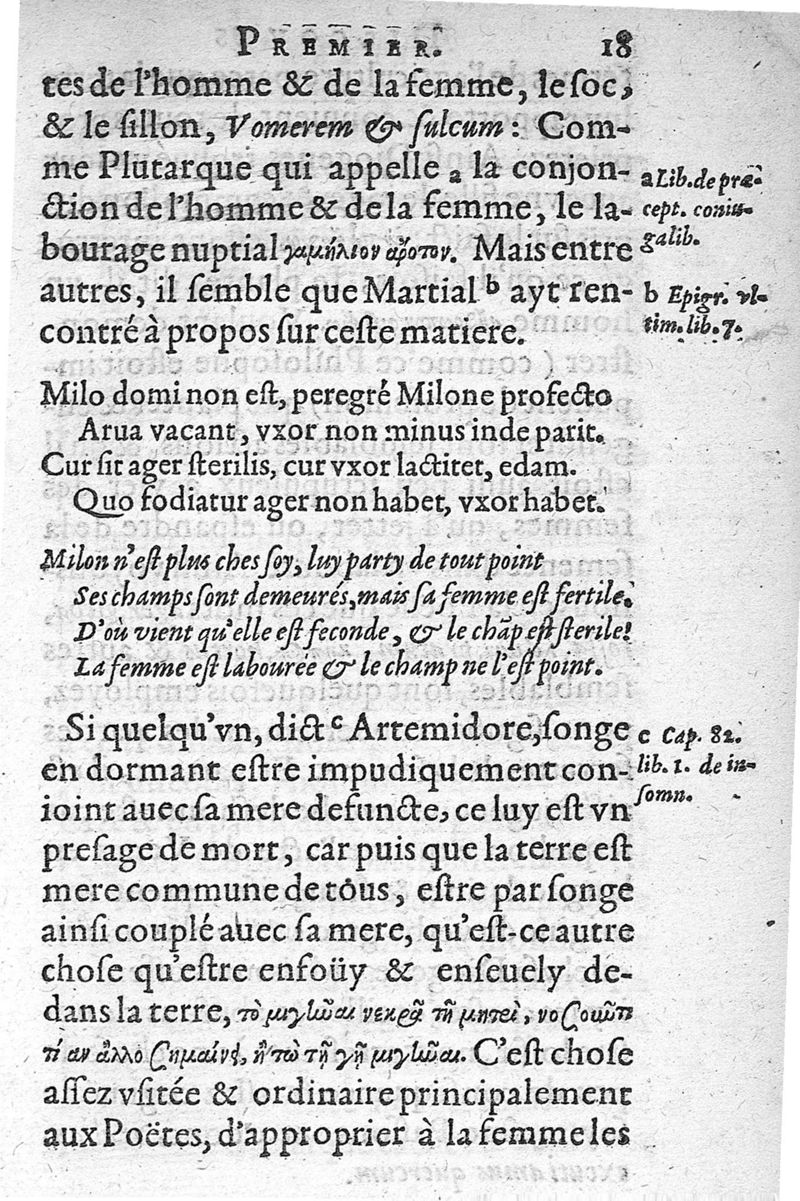 PREMIER. 18
tes de l'homme & de la femme, le soc,
& le sillon, Vomerem & sulcum : Com-
me Plutarque qui appelle a la conjon-
ction de l'homme & de la femme, le la-
bourage nuptial γαμήλιον ἄροτον. Mais entre
autres, il semble que Martial b ayt ren-
contré à propos sur ceste matiere.
a Lib. de præ-
cept. coniu-
galib.
b Epigr. vl-
tim. lib. 7.
Milo domi non est, peregré Milone profecto
Arua vacant, vxor non minus inde parit.
Cur sit ager sterilis, cur vxor lactitet, edam.
Quo fodiatur ager non habet, vxor habet.
Milon n'est plus ches soy, luy party de tout point
Ses champs sont demeurés, mais sa femme est fertile.
D'où vient qu'elle est feconde, & le chãp est sterile!
La femme est labourée & le champ ne l'est point.
Si quelqu'vn, dict c Artemidore, songe
en dormant estre impudiquement con-
ioint auec sa mere defuncte, ce luy est vn
presage de mort, car puis que la terre est
mere commune de tous, estre par songe
ainsi couplé auec sa mere, qu'est-ce autre
chose qu'estre enfoüy & enseuely de-
dans la terre, τὸ μιγῶαι νεκρᾷ τῇ μητρὶ, νοσοῦντι
τί αν ἄλλο σημαίνει, ἢ τῷ τῇ γῇ μιγῶαι. C'est chose
assez vsitée & ordinaire principalement
aux Poëtes, d'approprier à la femme les
c Cap. 82.
lib. 1. de in-
somn.